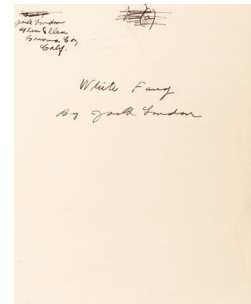 Jack London
Glen Ellen
Sonoma Co,
Calif.
White Fang
By Jack London